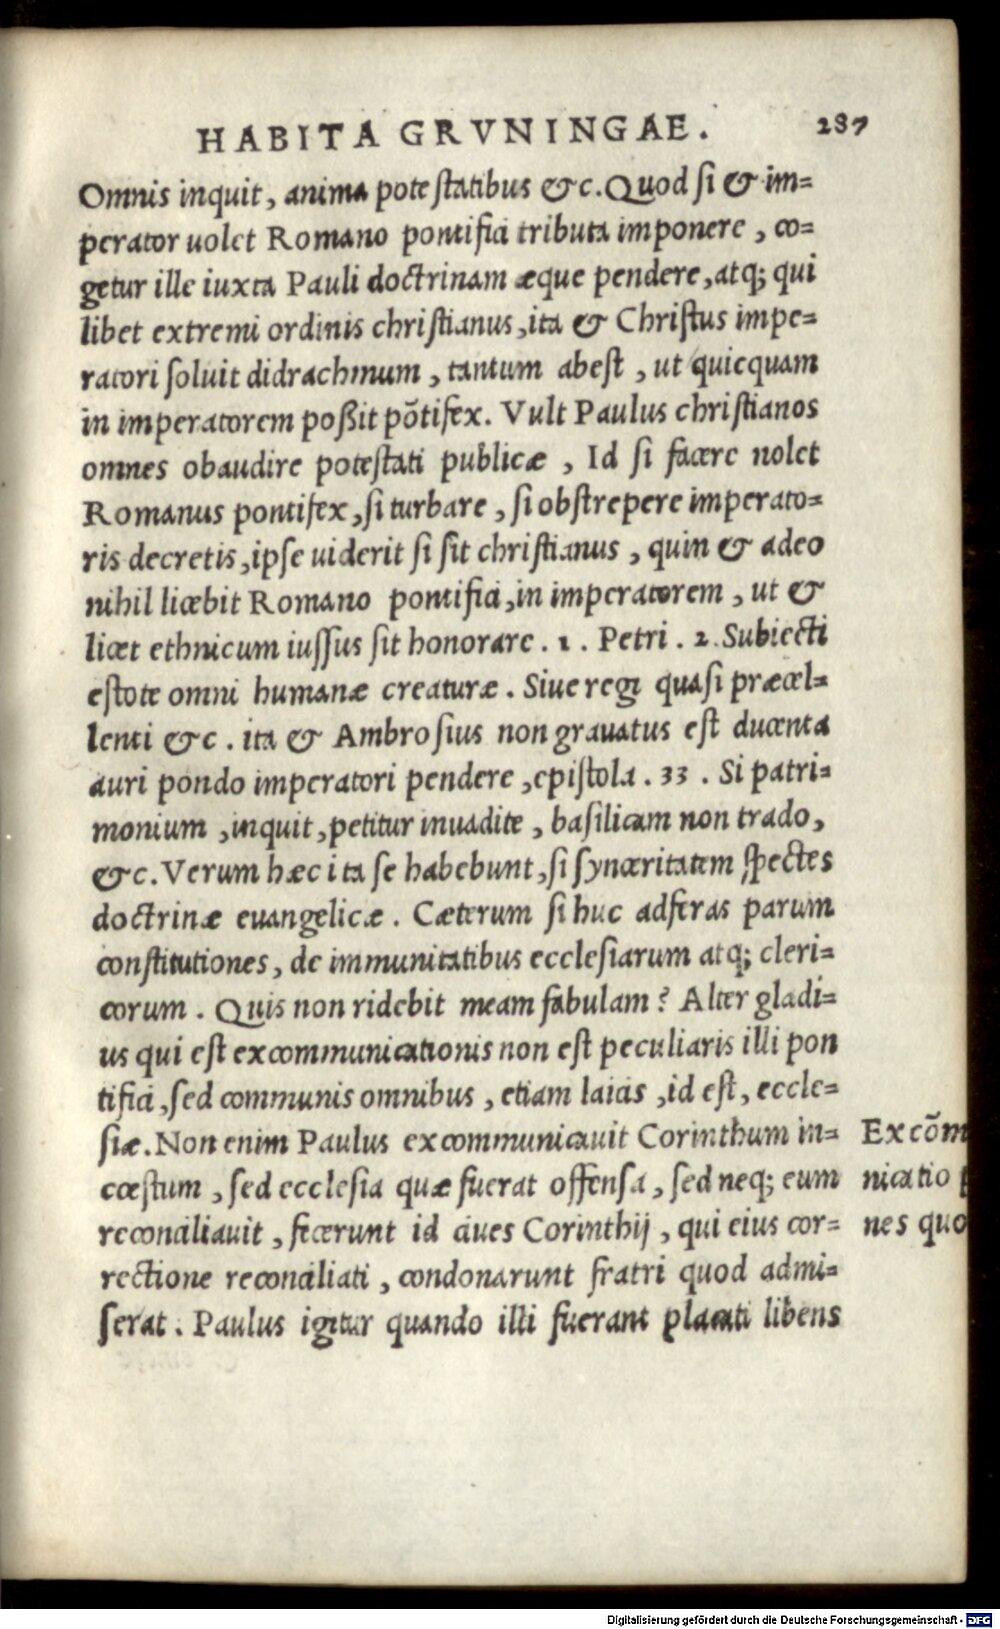 HABITA GRVNINGAE. 287
Omnis inquit, anima potestatibus &c. Quod si & im=
perator uolet Romano pontifici tributa imponere, co=
getur ille iuxta Pauli doctrinam æque pendere, atq; qui
libet extremi ordinis christianus, ita & Christus impe=
ratori soluit didrachmum, tantum abest, ut quicquam
in imperatorem poßit põtifex. Vult Paulus christianos
omnes obaudire potestati publicæ, Id si facere nolet
Romanus pontifex, si turbare, si obstrepere imperato=
ris decretis, ipse uiderit si sit christianus, quin & adeo
nihil licebit Romano pontifici, in imperatorem, ut &
licet ethnicum iussus sit honorare. 1. Petri. 2. Subiecti
estote omni humanæ creaturæ. Siue regi quasi præcel=
lenti &c. ita & Ambrosius non grauatus est ducenta
auri pondo imperatori pendere, epistola. 33. Si patri=
monium, inquit, petitur inuadite, basilicam non trado,
&c. Verum hæc ita se habebunt, si synceritatem spectes
doctrinæ euangelicæ. Cæterum si huc adferas parum
constitutiones, de immunitatibus ecclesiarum atq; cleri=
corum. Quis non ridebit meam fabulam? Alter gladi=
us qui est excommunicationis non est peculiaris illi pon
tifici, sed communis omnibus, etiam laicis, id est, eccle=
siæ. Non enim Paulus excommunicauit Corinthum in=
cœstum, sed ecclesia quæ fuerat offensa, sed neq; eum
reconciliauit, fecerunt id ciues Corinthij, qui eius cor=
rectione reconciliati, condonarunt fratri quod admi=
serat. Paulus igitur quando illi fuerant placati libens
Excõm
nicatio
nes quo
Digitalisierung gefördert durch die Deutsche Forschungsgemeinschaft - DFG